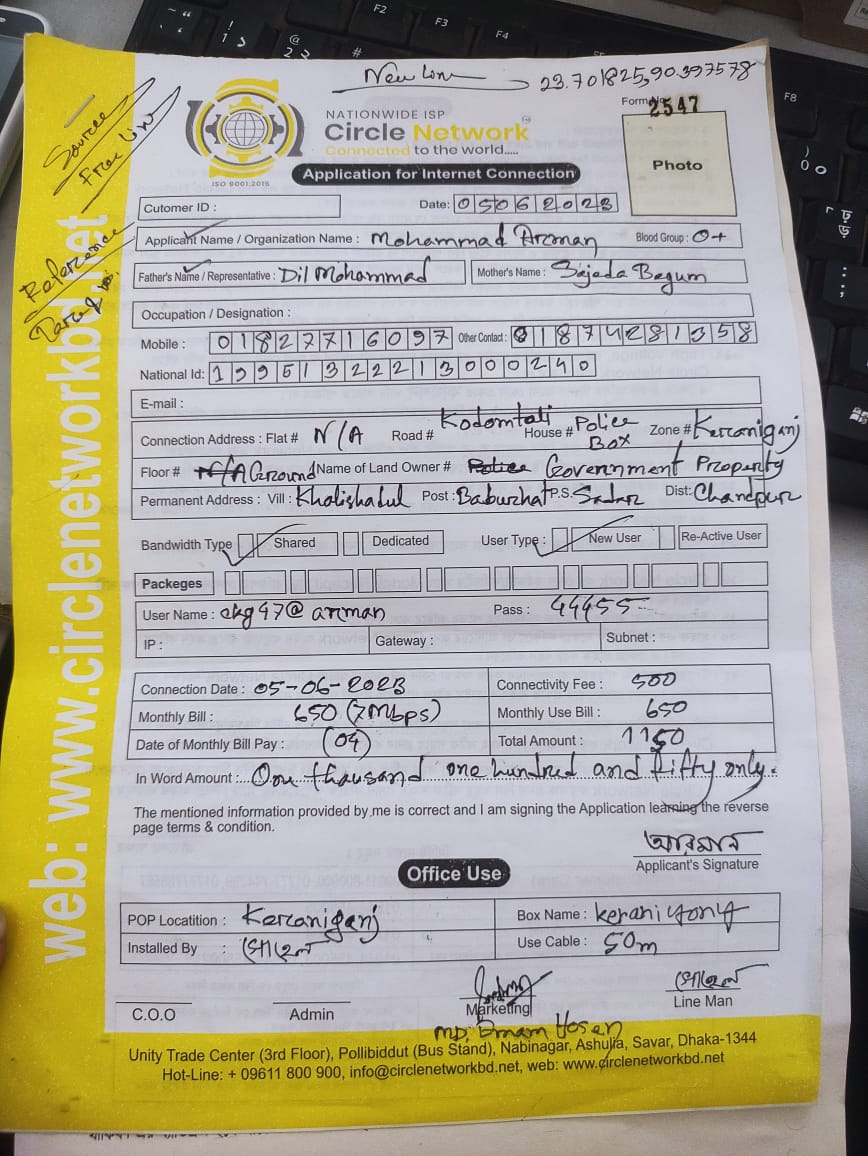 New Line 23.701825,90.397578
Source
Free Line
Reference
NATIONWIDE ISP
Circle Network
Connected to the world.....
ISO 9001:2015
Form No 2547
Photo
Application for Internet Connection
Cutomer ID :
Date: 05062023
Applicant Name / Organization Name : Mohammad Arman Blood Group : O+
Father's Name / Representative : Dil Mohammad Mother's Name : Sajada Begum
Occupation / Designation :
Mobile : 01827716097 Other Contact : 01874281358
National Id: 19951322213000240
E-mail :
Connection Address : Flat # N/A Road # Kodomtali House # Police Box Zone # Keraniganj
Floor # N/A Ground Name of Land Owner # Police Government Property
Permanent Address : Vill : Kholishadul Post : Baburhat P.S. Sadar Dist: Chandpur
Bandwidth Type Shared Dedicated User Type : New User Re-Active User
Packeges
User Name : ckg47@arman Pass : 44455
IP : Gateway : Subnet :
Connection Date : 05-06-2023 Connectivity Fee : 500
Monthly Bill : 650 (7Mbps) Monthly Use Bill : 650
Date of Monthly Bill Pay : (04) Total Amount : 1150
In Word Amount :.. One thousand one hundred and fifty only.
The mentioned information provided by me is correct and I am signing the Application learning the reverse
page terms & condition.
আরমান
Applicant's Signature
Office Use
POP Locatition : Keraniganj Box Name : keraniganj
Installed By : সোহেল Use Cable : 50m
সোহেল
C.O.O Admin Marketing Line Man
MD. Emam Hosen
Unity Trade Center (3rd Floor), Pollibiddut (Bus Stand), Nabinagar, Ashulia, Savar, Dhaka-1344
Hot-Line: + 09611 800 900, info@circlenetworkbd.net, web: www.circlenetworkbd.net
web: www.circlenetworkbd.net